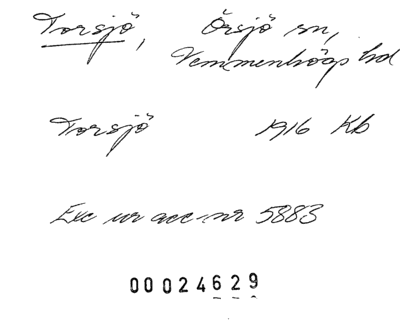 Torsjö, Örsjö sn,
Vemmenhögs hd
Torsjö 1916 Kb
Exc ur acc.nr 5883
00024629